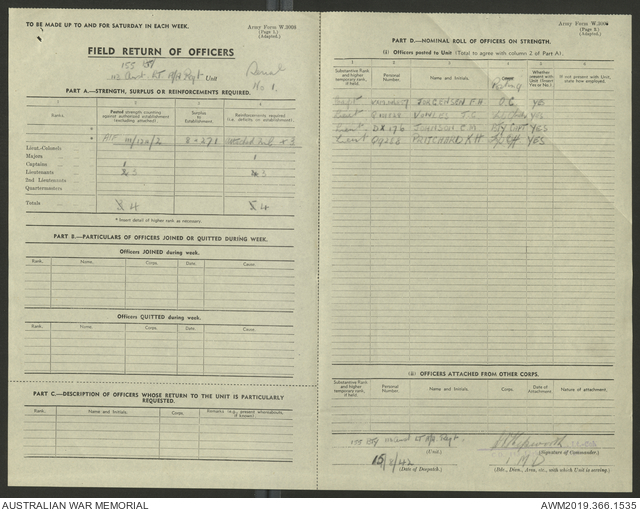 TO BE MADE UP TO AND FOR SATURDAY IN EACH WEEK.
Army Form W.3008
(Page 1.)
(Adapted.)
FIELD RETURN OF OFFICERS
155 Bty
Unit
Serial
No 1.
PART A.—STRENGTH, SURPLUS OR REINFORCEMENTS REQUIRED.
1 2 3 4
Ranks. Posted strength counting against authorised establishment (excluding attached). Surplus to Establishment. Reinforcements required (i.e. deficits on establishment).
Lieut.-Colonels
Majors 1
Captains 1
Lieutenants 3 3
2nd Lieutenants
Quartermasters
Totals 4 4
* Insert detail of higher rank as necessary.
PART B.—PARTICULARS OF OFFICERS JOINED OR QUITTED DURING WEEK.
Officers JOINED during week.
Rank. Name. Corps. Date. Cause.
Officers QUITTED during week.
Rank. Name. Corps. Date. Cause.
PART C.—DESCRIPTION OF OFFICERS WHOSE RETURN TO THE UNIT IS PARTICULARLY REQUESTED.
Rank. Name and Initials. Corps. Remarks (e.g., present whereabouts, if known).
Army Form W.3008
(Page 2.)
(Adapted.)
PART D.—NOMINAL ROLL OF OFFICERS ON STRENGTH.
(i) Officers posted to Unit (Total to agree with column 2 of Part A).
Substantive Rank and higher temporary rank, if held. Personal Number. Name and Initials. Whether present with Unit (Insert Yes or No.) If not present with Unit, state how employed.
Capt JORGENSEN F.H O.C YES
Lieut VOWLES J.C YES
Lieut JOHNSON YES
Lieut PRITCHARD K H YES
(ii) OFFICERS ATTACHED FROM OTHER CORPS.
Substantive Rank and higher temporary rank, if held. Personal Number. Name and Initials. Corps. Date of Attachment. Nature of attachment.
155 Bty
(Unit)
(Signature of Commander.)
15/8/42
(Date of Despatch.)
(Div., Disn., Area, etc., with which Unit is serving.)
AUSTRALIAN WAR MEMORIAL
AWM2019.366.1535